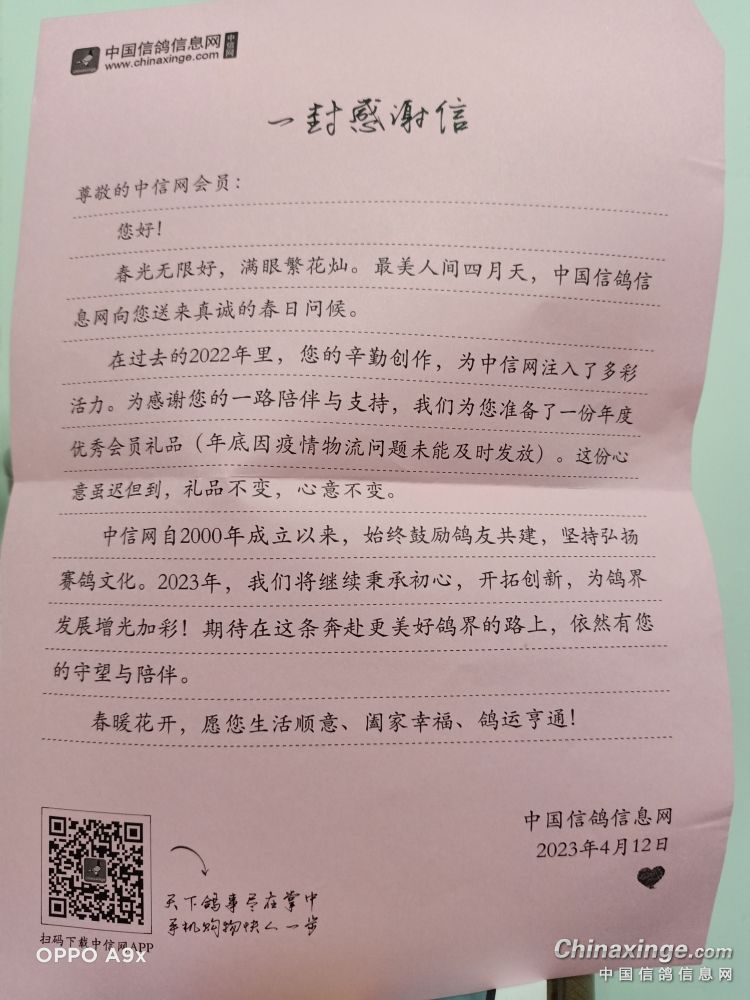 中国信鸽信息网 中信网
www.chinaxinge.com
一封感谢信
尊敬的中信网会员：
您好！
春光无限好，满眼繁花灿。最美人间四月天，中国信鸽信
息网向您送来真诚的春日问候。
在过去的2022年里，您的辛勤创作，为中信网注入了多彩
活力。为感谢您的一路陪伴与支持，我们为您准备了一份年度
优秀会员礼品（年底因疫情物流问题未能及时发放）。这份心
意虽迟但到，礼品不变，心意不变。
中信网自2000年成立以来，始终鼓励鸽友共建，坚持弘扬
赛鸽文化。2023年，我们将继续秉承初心，开拓创新，为鸽界
发展增光加彩！期待在这条奔赴更美好鸽界的路上，依然有您
的守望与陪伴。
春暖花开，愿您生活顺意、阖家幸福、鸽运亨通！
中国信鸽信息网
2023年4月12日
天下鸽事尽在掌中
手机购物快人一步
扫码下载中信网APP
OPPO A9x
Chinaxinge.com
中国信鸽信息网